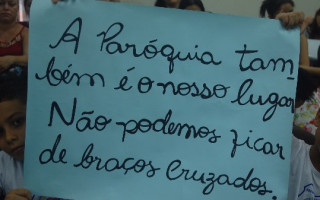 A Paróquia tam-
bém é o nosso lugar
Não podemos ficar
de braços cruzados.